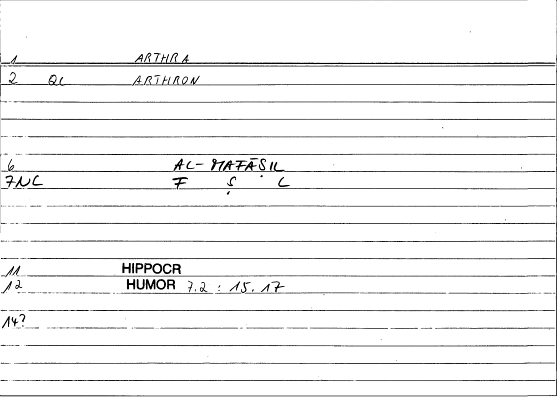 1 ARTHRA
2 QC ARTHRON
6 AL-MAFĀṢIL
7NC F Ṣ L
11 HIPPOCR
12 HUMOR 7.2 : 15.17
14?